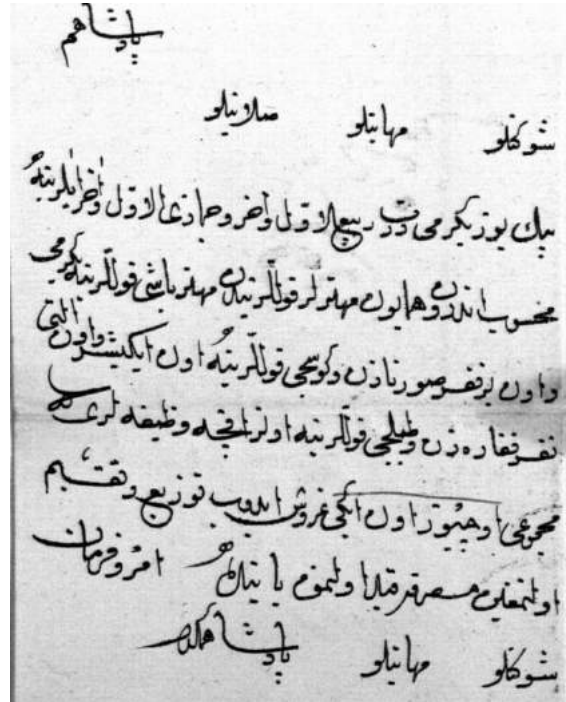 پادشاهم
شوكتلو مهابتلو صلابتلو
بيك يوز يكرمى درت ربيع الاول واخر وجمادى الاول واخر ايلرينه
محسوب اندرون همايون مهترلر قوللرندن مهتر باشى قوللرينه يكرمى
واون بر نفر صورنازن وكوسجى قوللرينه اون ايكيشر واون التى
نفر نقاره زن وطبلجى قوللرينه اونر اقچه وظيفه لرى
مجموعى اوچيوز اون ايكى غروش ايدوب توزيع وتقسيم
اولنمغين مصرف قيد اولنمق بابنده امر وفرمان
شوكتلو مهابتلو پادشاهمكدر